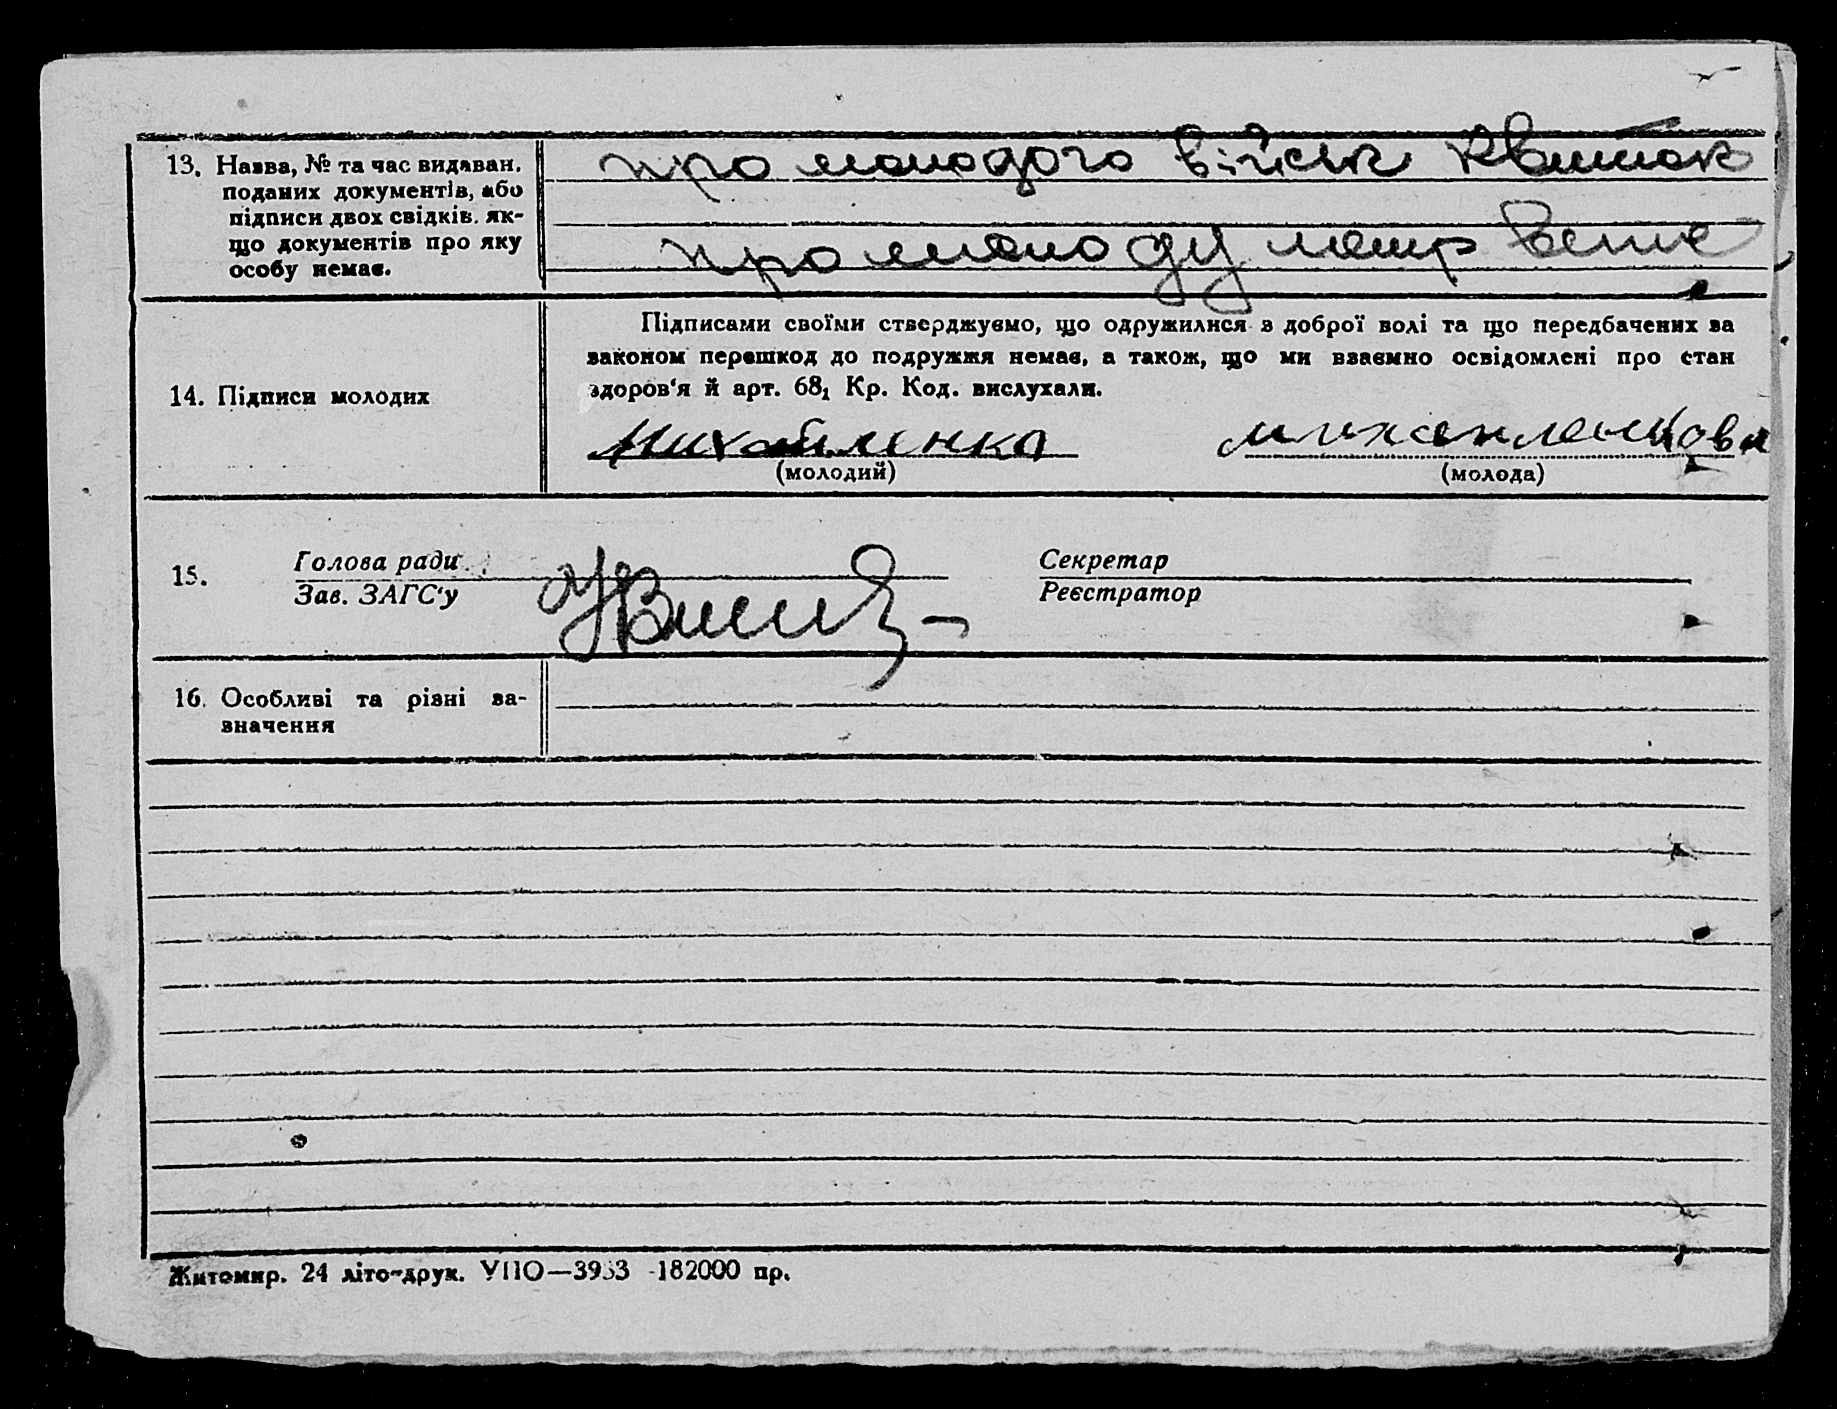 13. Назва, № та час видаван.
поданих документів, або
підписи двох свідків. як-
що документів про яку
особу немає.
про молодого військ квиток
про молоду метр
14. Підписи молодих
Підписами своїми стверджуємо, що одружилися з доброї волі та що передбачених за
законом перешкод до подружжя немає, а також, що ми взаємно освідомлені про стан
здоров'я й арт. 68₁ Кр. Код. вислухали.
Михайленко
(молодий)
(молода)
15.
Голова ради
Зав. ЗАГС'у
Секретар
Реєстратор
16. Особливі та різні за-
значення
Житомир. 24 літо-друк. УПО—3933 -182000 пр.